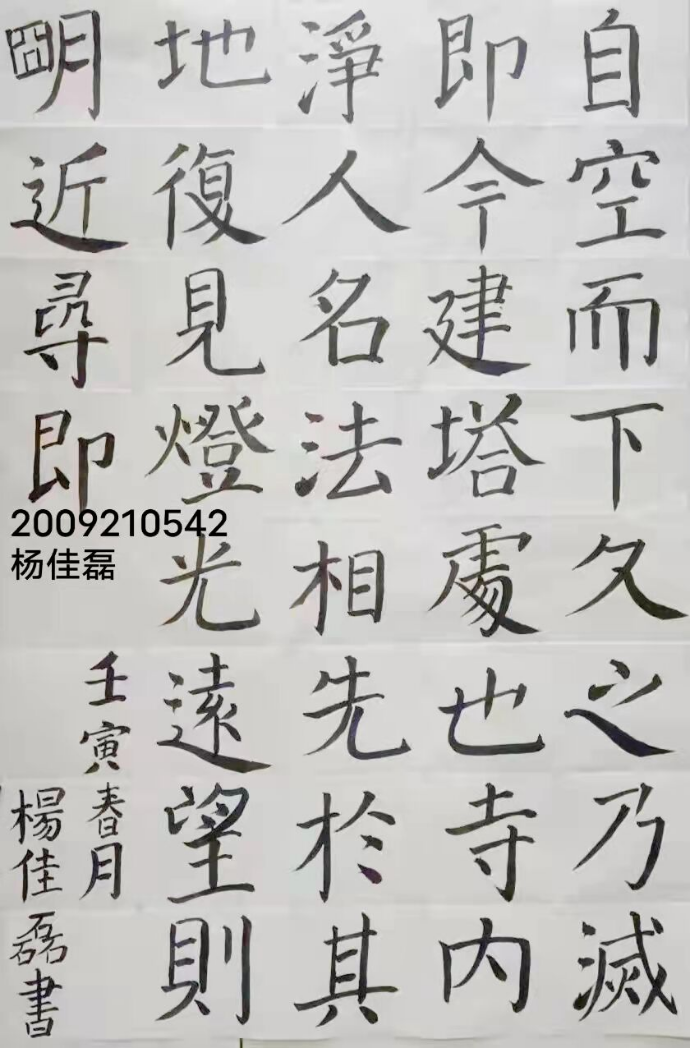 自空而下久之乃滅
即今建塔處也寺內
淨人名法相先於其
地復見燈光遠望則
明近尋即
壬寅春月
楊佳磊書
2009210542
杨佳磊